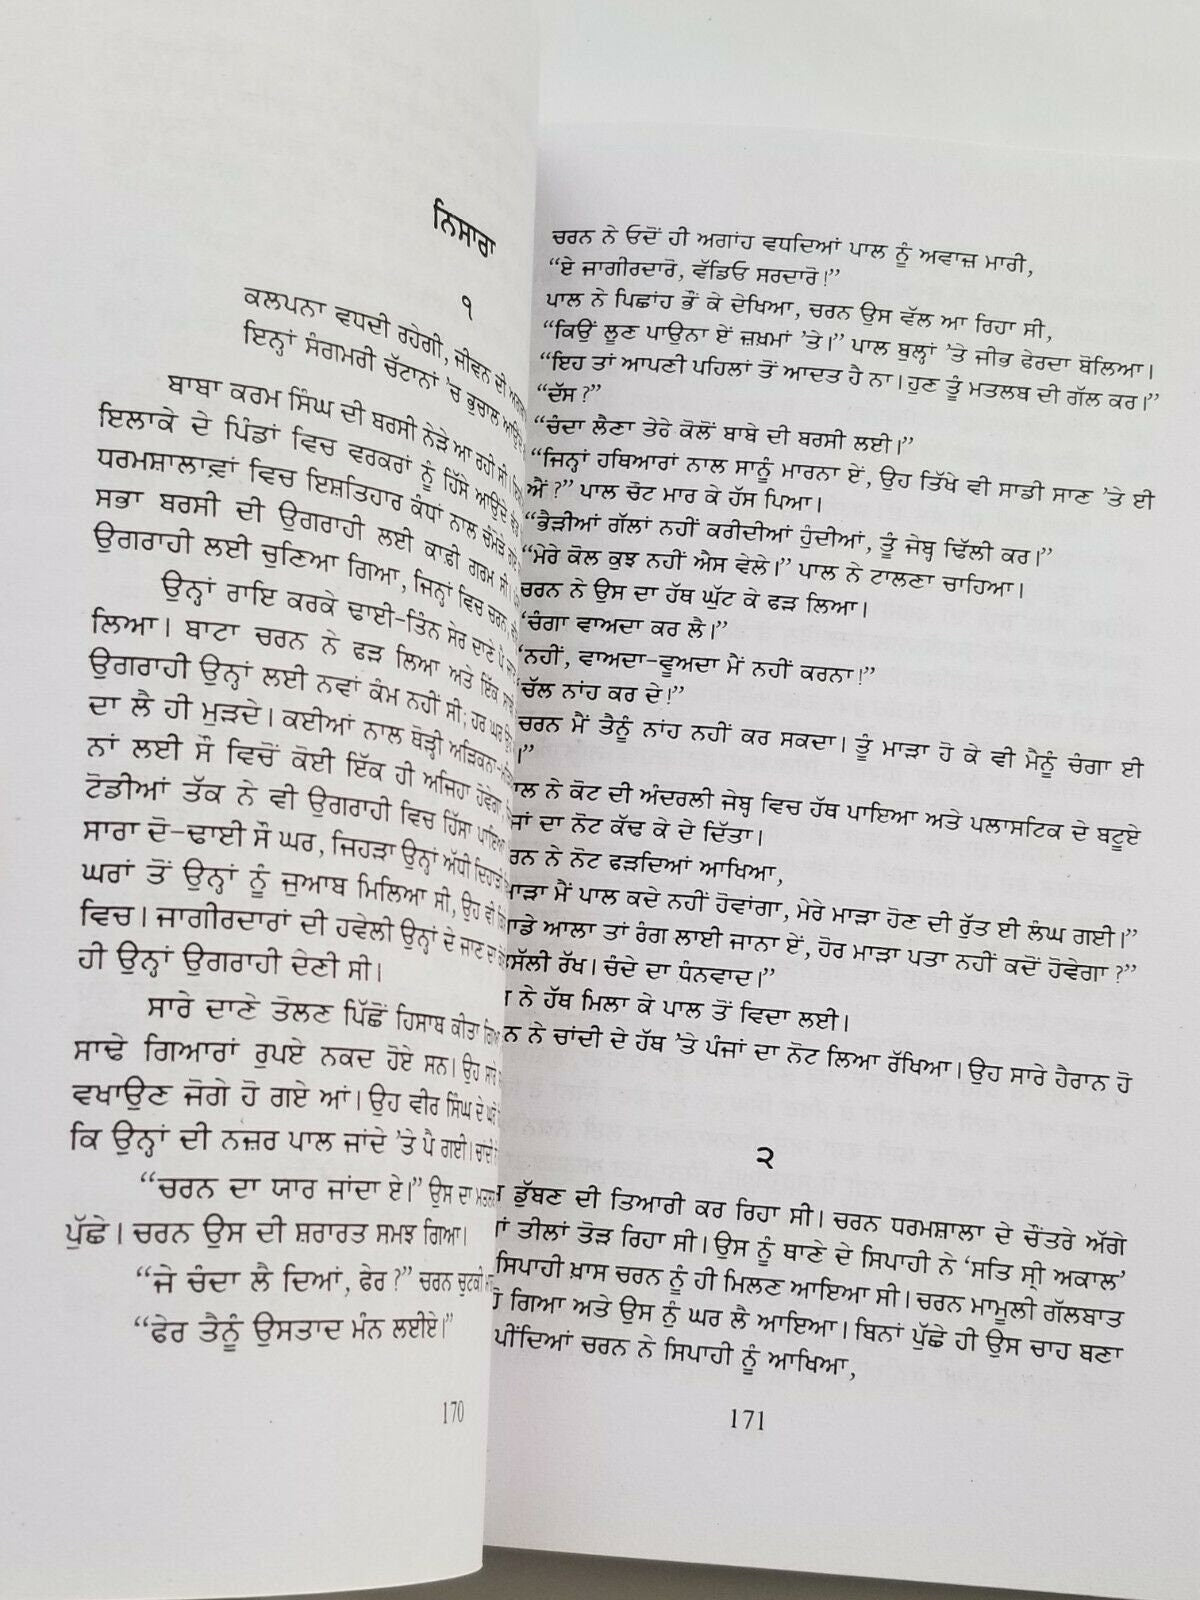 ਨਿਸਾਰਾ
੧
ਕਲਪਨਾ ਵਧਦੀ ਰਹੇਗੀ, ਜੀਵਨ ਦੀ
ਇਨ੍ਹਾਂ ਸੰਗਮਰੀ ਚੱਟਾਨਾਂ ’ਚ ਭੁਚਾਲ ਆਉਂਦੇ
ਬਾਬਾ ਕਰਮ ਸਿੰਘ ਦੀ ਬਰਸੀ ਨੇੜੇ ਆ ਰਹੀ ਸੀ।
ਇਲਾਕੇ ਦੇ ਪਿੰਡਾਂ ਵਿਚ ਵਰਕਰਾਂ ਨੂੰ ਹਿੱਸੇ ਆਉਂਦੇ
ਧਰਮਸ਼ਾਲਾਵਾਂ ਵਿਚ ਇਸ਼ਤਿਹਾਰ ਕੰਧਾਂ ਨਾਲ ਚੰਮੜੇ ਗਏ
ਸਭਾ ਬਰਸੀ ਦੀ ਉਗਰਾਹੀ ਲਈ ਕਾਫ਼ੀ ਗਰਮ ਸੀ।
ਉਗਰਾਹੀ ਲਈ ਚੁਣਿਆ ਗਿਆ, ਜਿਨ੍ਹਾਂ ਵਿਚ ਚਰਨ,
ਉਨ੍ਹਾਂ ਰਾਇ ਕਰਕੇ ਢਾਈ-ਤਿੰਨ ਸੇਰ ਦਾਣੇ ਪੈ
ਲਿਆ। ਬਾਟਾ ਚਰਨ ਨੇ ਫੜ ਲਿਆ ਅਤੇ ਇੱਕ
ਉਗਰਾਹੀ ਉਨ੍ਹਾਂ ਲਈ ਨਵਾਂ ਕੰਮ ਨਹੀਂ ਸੀ; ਹਰ ਘਰ
ਦਾ ਲੈ ਹੀ ਮੁੜਦੇ। ਕਈਆਂ ਨਾਲ ਥੋੜ੍ਹੀ ਅੜਿਕਨਾ-
ਨਾਂ ਲਈ ਸੌ ਵਿਚੋਂ ਕੋਈ ਇੱਕ ਹੀ ਅਜਿਹਾ ਹੋਵੇਗਾ,
ਟੋਡੀਆਂ ਤੱਕ ਨੇ ਵੀ ਉਗਰਾਹੀ ਵਿਚ ਹਿੱਸਾ ਪਾਇਆ
ਸਾਰਾ ਦੋ-ਢਾਈ ਸੌ ਘਰ, ਜਿਹੜਾ ਉਨ੍ਹਾਂ ਅੱਧੀ ਦਿਹਾੜੀ
ਘਰਾਂ ਤੋਂ ਉਨ੍ਹਾਂ ਨੂੰ ਜੁਆਬ ਮਿਲਿਆ ਸੀ, ਉਹ ਵੀ
ਵਿਚ। ਜਾਗੀਰਦਾਰਾਂ ਦੀ ਹਵੇਲੀ ਉਨ੍ਹਾਂ ਦੇ ਜਾਣ ਦਾ
ਹੀ ਉਨ੍ਹਾਂ ਉਗਰਾਹੀ ਦੇਣੀ ਸੀ।
ਸਾਰੇ ਦਾਣੇ ਤੋਲਣ ਪਿੱਛੋਂ ਹਿਸਾਬ ਕੀਤਾ ਗਿਆ
ਸਾਢੇ ਗਿਆਰਾਂ ਰੁਪਏ ਨਕਦ ਹੋਏ ਸਨ। ਉਹ ਸਾਰੇ
ਵਖਾਉਣ ਜੋਗੇ ਹੋ ਗਏ ਆਂ। ਉਹ ਵੀਰ ਸਿੰਘ ਦੇ ਘਰੋਂ
ਕਿ ਉਨ੍ਹਾਂ ਦੀ ਨਜ਼ਰ ਪਾਲ ਜਾਂਦੇ ’ਤੇ ਪੈ ਗਈ। ਚਾਂਦੀ
“ਚਰਨ ਦਾ ਯਾਰ ਜਾਂਦਾ ਏ।” ਉਸ ਦਾ
ਪੁੱਛੇ। ਚਰਨ ਉਸ ਦੀ ਸ਼ਰਾਰਤ ਸਮਝ ਗਿਆ।
“ਜੇ ਚੰਦਾ ਲੈ ਦਿਆਂ, ਫੇਰ?” ਚਰਨ ਚੁਟਕੀ
“ਫੇਰ ਤੈਨੂੰ ਉਸਤਾਦ ਮੰਨ ਲਈਏ।”
170
ਚਰਨ ਨੇ ਓਦੋਂ ਹੀ ਅਗਾਂਹ ਵਧਦਿਆਂ ਪਾਲ ਨੂੰ ਅਵਾਜ਼ ਮਾਰੀ,
“ਏ ਜਾਗੀਰਦਾਰੋ, ਵੱਡਿਓ ਸਰਦਾਰੋ!”
ਪਾਲ ਨੇ ਪਿਛਾਂਹ ਭੌਂ ਕੇ ਦੇਖਿਆ, ਚਰਨ ਉਸ ਵੱਲ ਆ ਰਿਹਾ ਸੀ,
“ਕਿਉਂ ਲੂਣ ਪਾਉਨਾ ਏਂ ਜ਼ਖ਼ਮਾਂ ’ਤੇ।” ਪਾਲ ਬੁਲ੍ਹਾਂ ’ਤੇ ਜੀਭ ਫੇਰਦਾ ਬੋਲਿਆ।
“ਇਹ ਤਾਂ ਆਪਣੀ ਪਹਿਲਾਂ ਤੋਂ ਆਦਤ ਹੈ ਨਾ। ਹੁਣ ਤੂੰ ਮਤਲਬ ਦੀ ਗੱਲ ਕਰ।”
“ਦੱਸ?”
“ਚੰਦਾ ਲੈਣਾ ਤੇਰੇ ਕੋਲੋਂ ਬਾਬੇ ਦੀ ਬਰਸੀ ਲਈ।”
“ਜਿਨ੍ਹਾਂ ਹਥਿਆਰਾਂ ਨਾਲ ਸਾਨੂੰ ਮਾਰਨਾ ਏਂ, ਉਹ ਤਿੱਖੇ ਵੀ ਸਾਡੀ ਸਾਣ ’ਤੇ ਈ
ਐਂ?” ਪਾਲ ਚੋਟ ਮਾਰ ਕੇ ਹੱਸ ਪਿਆ।
“ਭੈੜੀਆਂ ਗੱਲਾਂ ਨਹੀਂ ਕਰੀਦੀਆਂ ਹੁੰਦੀਆਂ, ਤੂੰ ਜੇਬ੍ਹ ਢਿੱਲੀ ਕਰ।”
“ਮੇਰੇ ਕੋਲ ਕੁਝ ਨਹੀਂ ਐਸ ਵੇਲੇ।” ਪਾਲ ਨੇ ਟਾਲਣਾ ਚਾਹਿਆ।
ਚਰਨ ਨੇ ਉਸ ਦਾ ਹੱਥ ਘੁੱਟ ਕੇ ਫੜ ਲਿਆ।
‘ਚੰਗਾ ਵਾਅਦਾ ਕਰ ਲੈ।”
‘ਨਹੀਂ, ਵਾਅਦਾ-ਵੂਅਦਾ ਮੈਂ ਨਹੀਂ ਕਰਨਾ!”
‘ਚੱਲ ਨਾਂਹ ਕਰ ਦੇ!”
ਚਰਨ ਮੈਂ ਤੈਨੂੰ ਨਾਂਹ ਨਹੀਂ ਕਰ ਸਕਦਾ। ਤੂੰ ਮਾੜਾ ਹੋ ਕੇ ਵੀ ਮੈਨੂੰ ਚੰਗਾ ਈ
।”
ਨੇ ਕੋਟ ਦੀ ਅੰਦਰਲੀ ਜੇਬ੍ਹ ਵਿਚ ਹੱਥ ਪਾਇਆ ਅਤੇ ਪਲਾਸਟਿਕ ਦੇ ਬਟੂਏ
ਦਾ ਨੋਟ ਕੱਢ ਕੇ ਦੇ ਦਿੱਤਾ।
ਨੇ ਨੋਟ ਫੜਦਿਆਂ ਆਖਿਆ,
ਮੈਂ ਪਾਲ ਕਦੇ ਨਹੀਂ ਹੋਵਾਂਗਾ, ਮੇਰੇ ਮਾੜਾ ਹੋਣ ਦੀ ਰੁੱਤ ਈ ਲੰਘ ਗਈ।”
ਆਲਾ ਤਾਂ ਰੰਗ ਲਾਈ ਜਾਨਾ ਏਂ, ਹੋਰ ਮਾੜਾ ਪਤਾ ਨਹੀਂ ਕਦੋਂ ਹੋਵੇਗਾ?”
ਰੱਖ। ਚੰਦੇ ਦਾ ਧੰਨਵਾਦ।”
ਨੇ ਹੱਥ ਮਿਲਾ ਕੇ ਪਾਲ ਤੋਂ ਵਿਦਾ ਲਈ।
ਨੇ ਚਾਂਦੀ ਦੇ ਹੱਥ ’ਤੇ ਪੰਜਾਂ ਦਾ ਨੋਟ ਲਿਆ ਰੱਖਿਆ। ਉਹ ਸਾਰੇ ਹੈਰਾਨ ਹੋ
੨
ਡੁੱਬਣ ਦੀ ਤਿਆਰੀ ਕਰ ਰਿਹਾ ਸੀ। ਚਰਨ ਧਰਮਸ਼ਾਲਾ ਦੇ ਚੌਂਤਰੇ ਅੱਗੇ
ਤੀਲਾਂ ਤੋੜ ਰਿਹਾ ਸੀ। ਉਸ ਨੂੰ ਥਾਣੇ ਦੇ ਸਿਪਾਹੀ ਨੇ ‘ਸਤਿ ਸ੍ਰੀ ਅਕਾਲ’
ਸਿਪਾਹੀ ਖ਼ਾਸ ਚਰਨ ਨੂੰ ਹੀ ਮਿਲਣ ਆਇਆ ਸੀ। ਚਰਨ ਮਾਮੂਲੀ ਗੱਲਬਾਤ
ਗਿਆ ਅਤੇ ਉਸ ਨੂੰ ਘਰ ਲੈ ਆਇਆ। ਬਿਨਾਂ ਪੁੱਛੇ ਹੀ ਉਸ ਚਾਹ ਬਣਾ
ਪੀਂਦਿਆਂ ਚਰਨ ਨੇ ਸਿਪਾਹੀ ਨੂੰ ਆਖਿਆ,
171